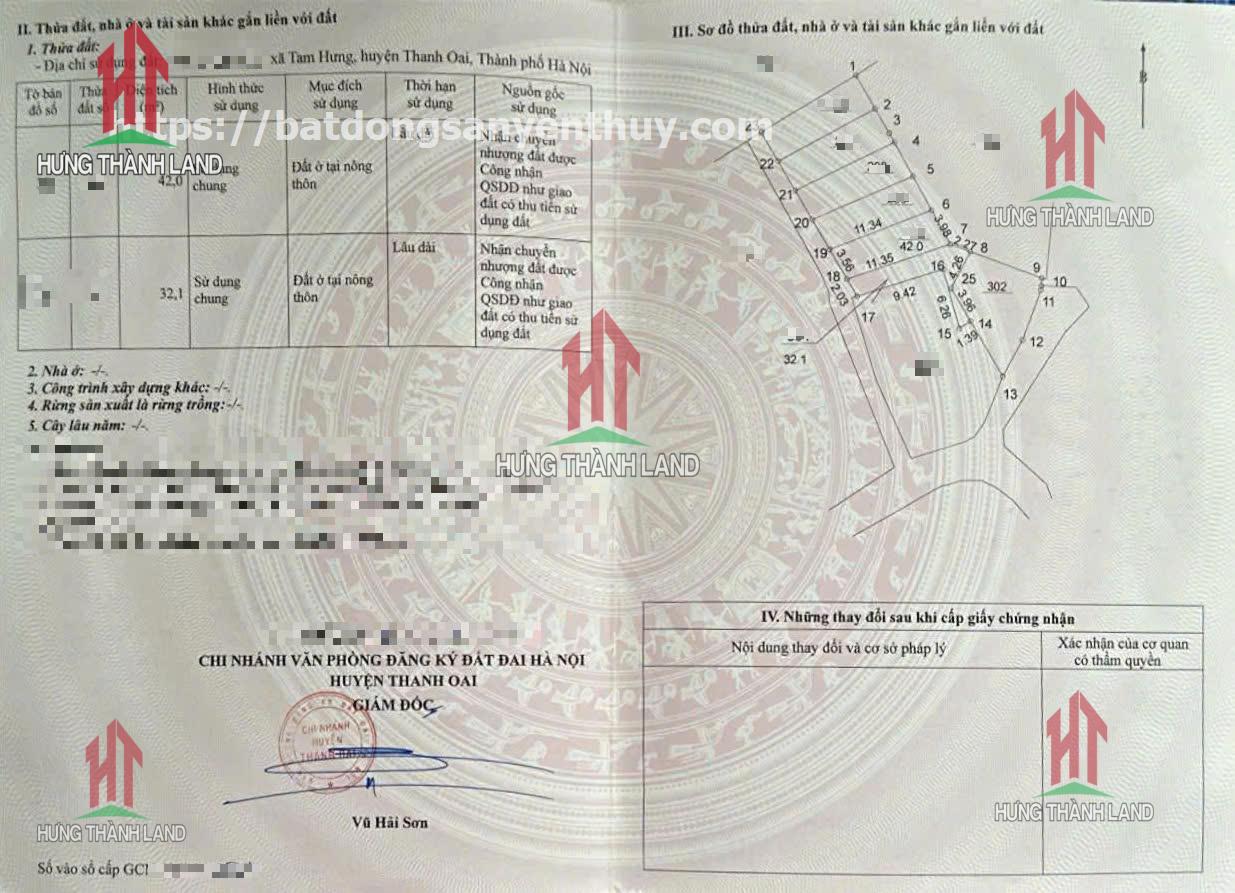 II. Thửa đất, nhà ở và tài sản khác gắn liền với đất
1. Thửa đất:
- Địa chỉ sử dụng đất: xã Tam Hưng, huyện Thanh Oai, Thành phố Hà Nội
Tờ bản đồ số
Thửa đất số
Diện tích (m²)
Hình thức sử dụng
Mục đích sử dụng
Thời hạn sử dụng
Nguồn gốc sử dụng
42,0
chung
Đất ở tại nông thôn
Nhận chuyển
nhượng đất được
Công nhận
QSDĐ như giao
đất có thu tiền sử
dụng đất
32,1
Sử dụng chung
Đất ở tại nông thôn
Lâu dài
Nhận chuyển
nhượng đất được
Công nhận
QSDĐ như giao
đất có thu tiền sử
dụng đất
2. Nhà ở: -/-.
3. Công trình xây dựng khác: -/-.
4. Rừng sản xuất là rừng trồng:-/-.
5. Cây lâu năm: -/-.
CHI NHÁNH VĂN PHÒNG ĐĂNG KÝ ĐẤT ĐAI HÀ NỘI
HUYỆN THANH OAI
GIÁM ĐỐC
CHI NHÁNH
HUYỆN
THANH OAI
Vũ Hải Sơn
Số vào sổ cấp GC
III. Sơ đồ thửa đất, nhà ở và tài sản khác gắn liền với đất
B
1
2
3
4
5
6
7
8
9
10
11
12
13
14
15
16
17
18
19
20
21
22
25
11.34
3.98
2.27
42.0
11.35
3.56
4.26
2.03
9.42
3.96
6.26
1.39
302
32.1
IV. Những thay đổi sau khi cấp giấy chứng nhận
Nội dung thay đổi và cơ sở pháp lý
Xác nhận của cơ quan
có thẩm quyền
https://batdongsanyenthuy.com
HƯNG THÀNH LAND
HƯNG THÀNH LAND
HƯNG THÀNH LAND
HƯNG THÀNH LAND
HƯNG THÀNH LAND